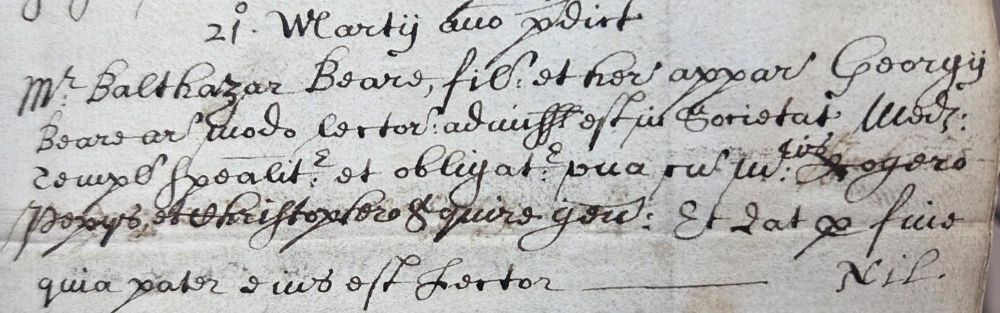 21º. Martij anno pdict
Mr. Balthazar Beare, fil: et her appar Georgij
Beare ar modo lector: admiss est in Societat Medij:
Templi spealit: et obligat: vna cu m: ris Rogero
Pepys, et Christophero Squire gen: Et dat p fine
quia pater eius est Lector Nil.